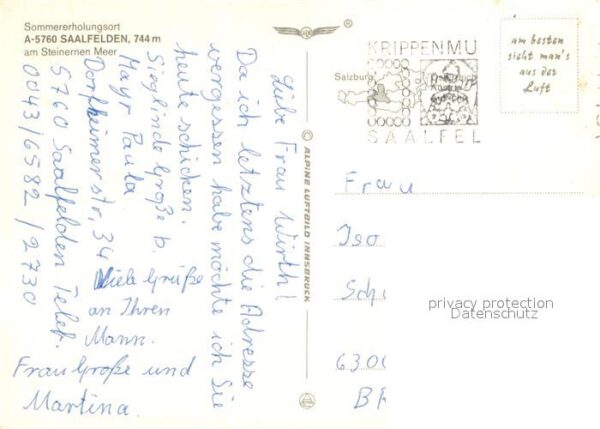 Sommererholungsort
A-5760 SAALFELDEN, 744 m
am Steinernen Meer
Liebe Frau Wirth!
Da ich letztens die Adresse
vergessen habe möchte ich Sie
heute schicken.
Sieglinde Große b.
Mayr Paula
Dorfheimerstr, 34
5760 Saalfelden Telef.
0043/6582/2730
Viele Grüße
an Ihren
Mann.
Frau Große und
Martina.
© ALPINE LUFTBILD INNSBRUCK
KRIPPENMU
Salzburg
SAALFEL
am besten
sieht man's
aus der
Luft
Frau
Iso
Sch
6300
BR
privacy protection
Datenschutz